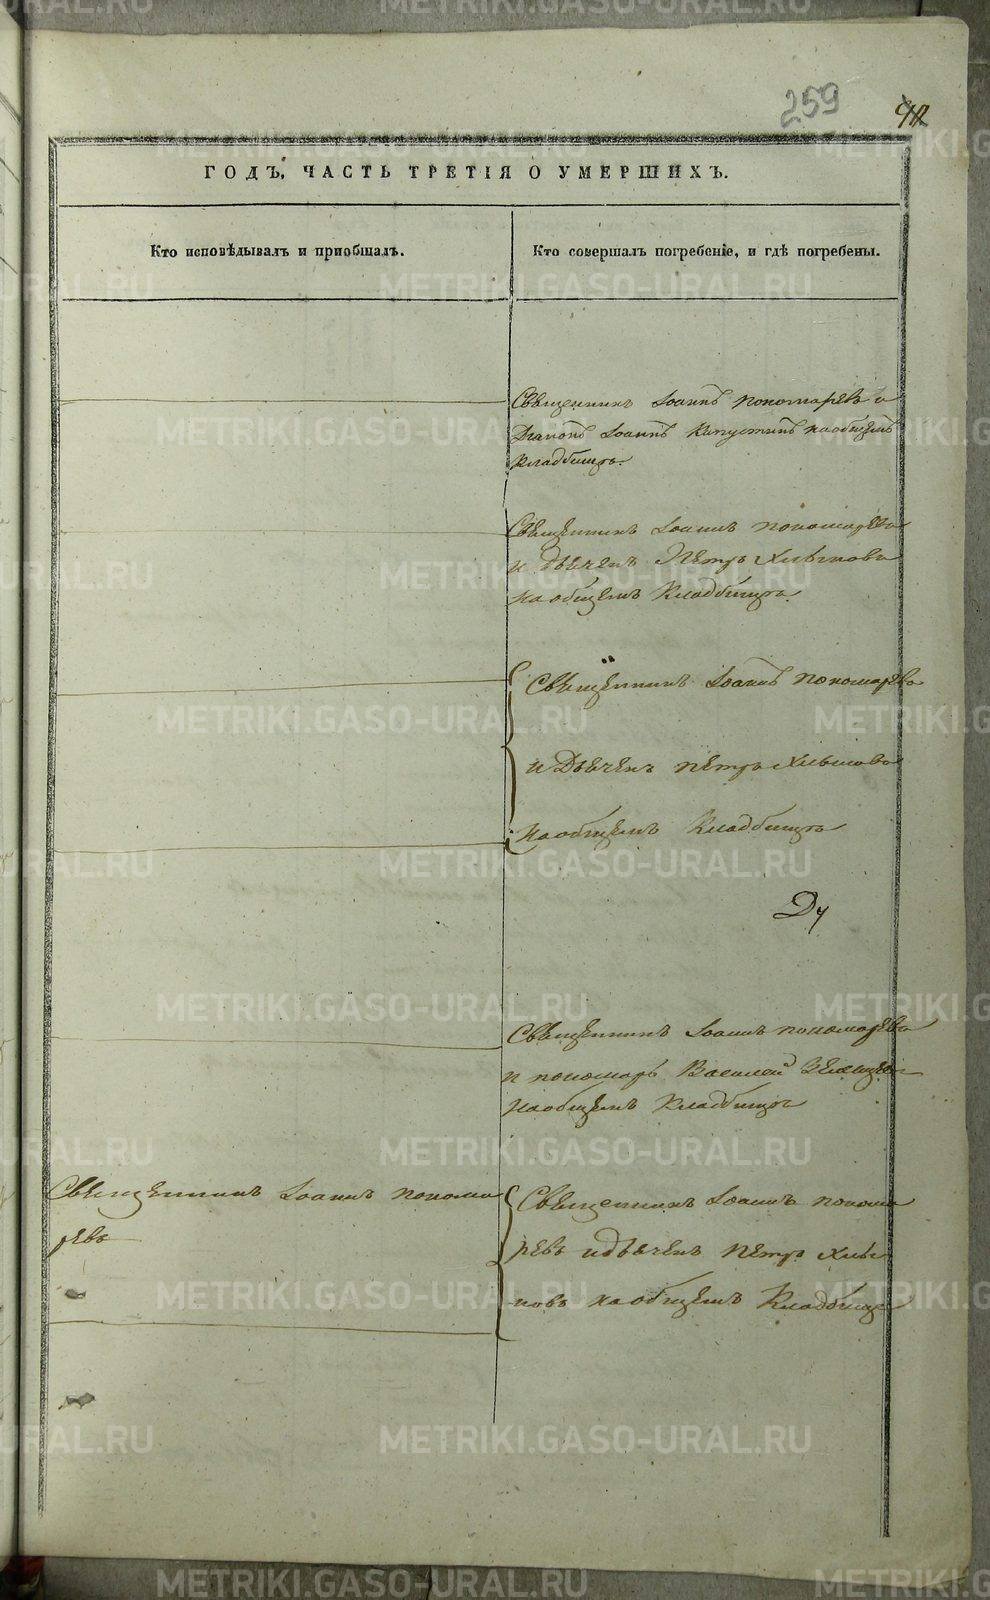 259
ГОДЪ, ЧАСТЬ ТРЕТІЯ О УМЕРШИХЪ.
Кто исповѣдывалъ и пріобщалъ.
Кто совершалъ погребеніе, и гдѣ погребены.
Священникъ Іоаннъ пономаревъ и
Діаконъ Іоаннъ Капустинъ на общемъ
Кладбищѣ.
Священникъ Іоаннъ пономаревъ
и дьячекъ Петръ Хлыновъ
на общемъ Кладбищѣ.
Священникъ Іоаннъ пономаревъ
и Дьячекъ петръ Хлыновъ
на общемъ Кладбищѣ
Ду
Священникъ Іоаннъ пономаревъ
и пономарь Василей
на общемъ Кладбищѣ
Священникъ Іоаннъ понома
ревъ
Священникъ Іоаннъ понома
ревъ и дьячекъ петръ Хлы
новъ на общемъ Кладбище
METRIKI.GASO-URAL.RU